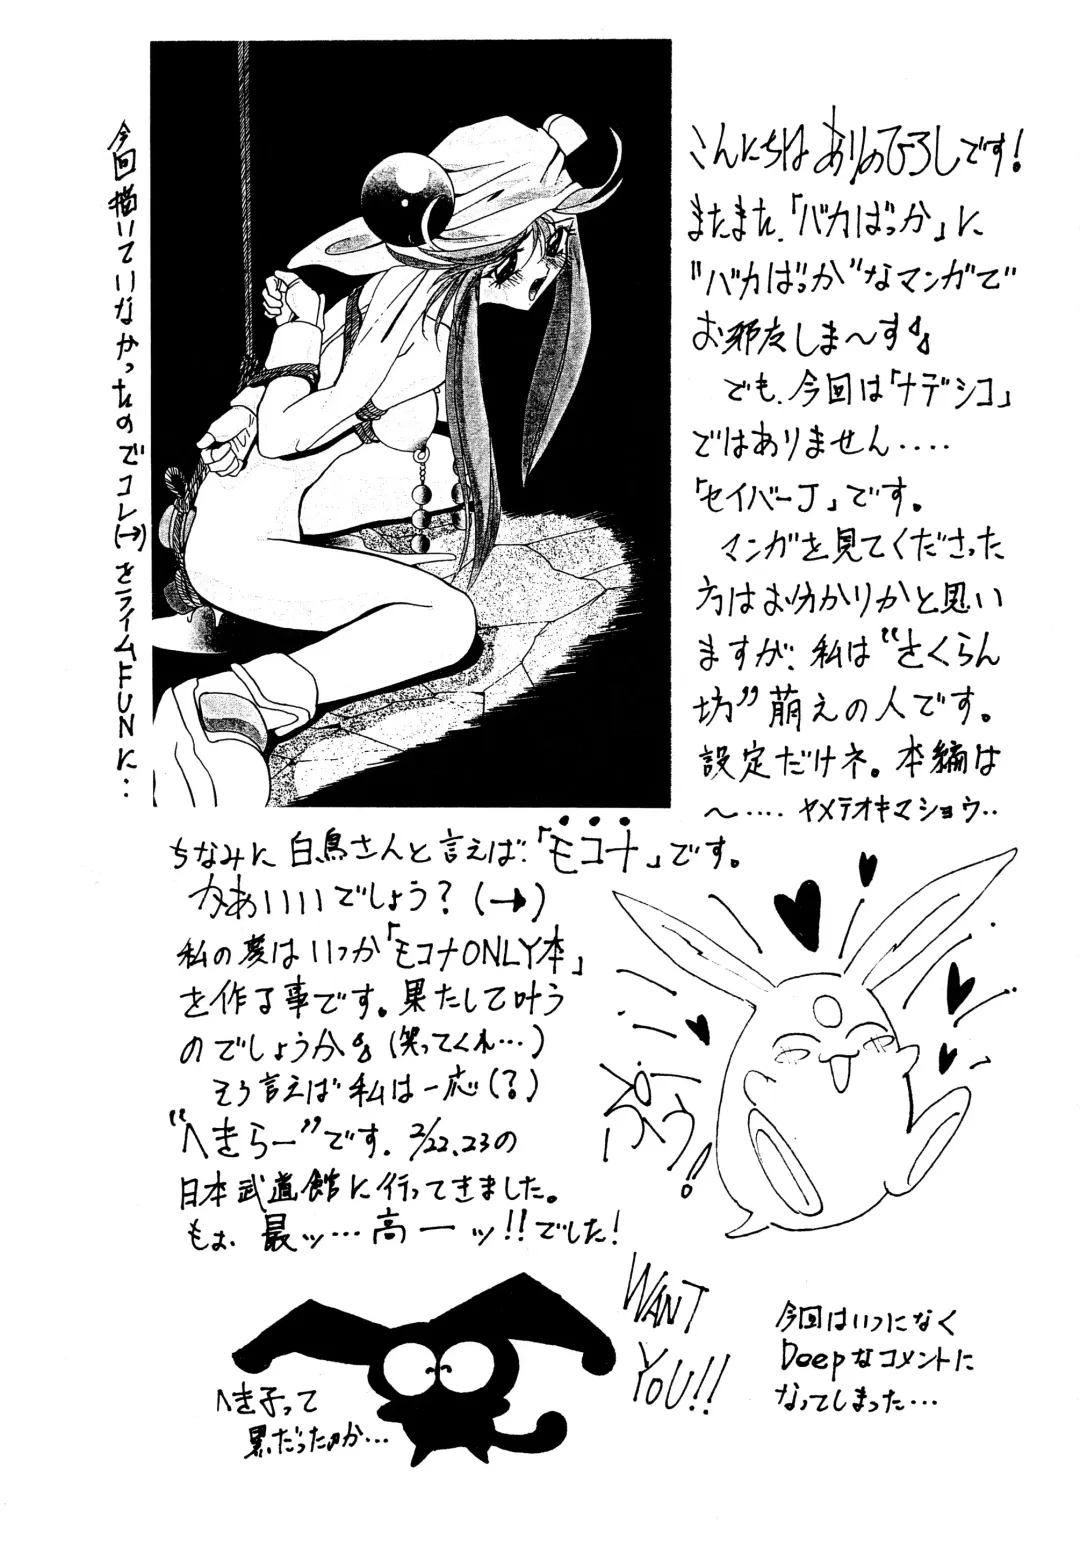 こんにちは ありのひろしです！
またまた「バカばっか」に
"バカばっか"なマンガで
お邪魔しま～す。
でも、今回は「ナデシコ」
ではありません・・・・
「セイバーJ」です。
マンガを見てくださった
方はお分かりかと思い
ますが、私は"さくらん
坊"萌えの人です。
設定だけネ。本編は
～・・・・ヤメテオキマショウ・・
今回描いていなかったのでコレ(→)をライムFUNに・・
ちなみに 白鳥さんと言えば「モコナ」です。
かあいいいでしょう？(→)
私の夢はいつか「モコナONLY本」
を作る事です。果たして叶う
のでしょうか。(笑ってくれ…)
そう言えば 私は一応(？)
"へきらー"です。2/22、23の
日本武道館に行ってきました。
もぉ、最ッ…高ーッ！！でした！
ぷぅ！
へき子って
黒だったのか…
WANT
YOU!!
今回はいつになく
Deepなコメントに
なってしまった…